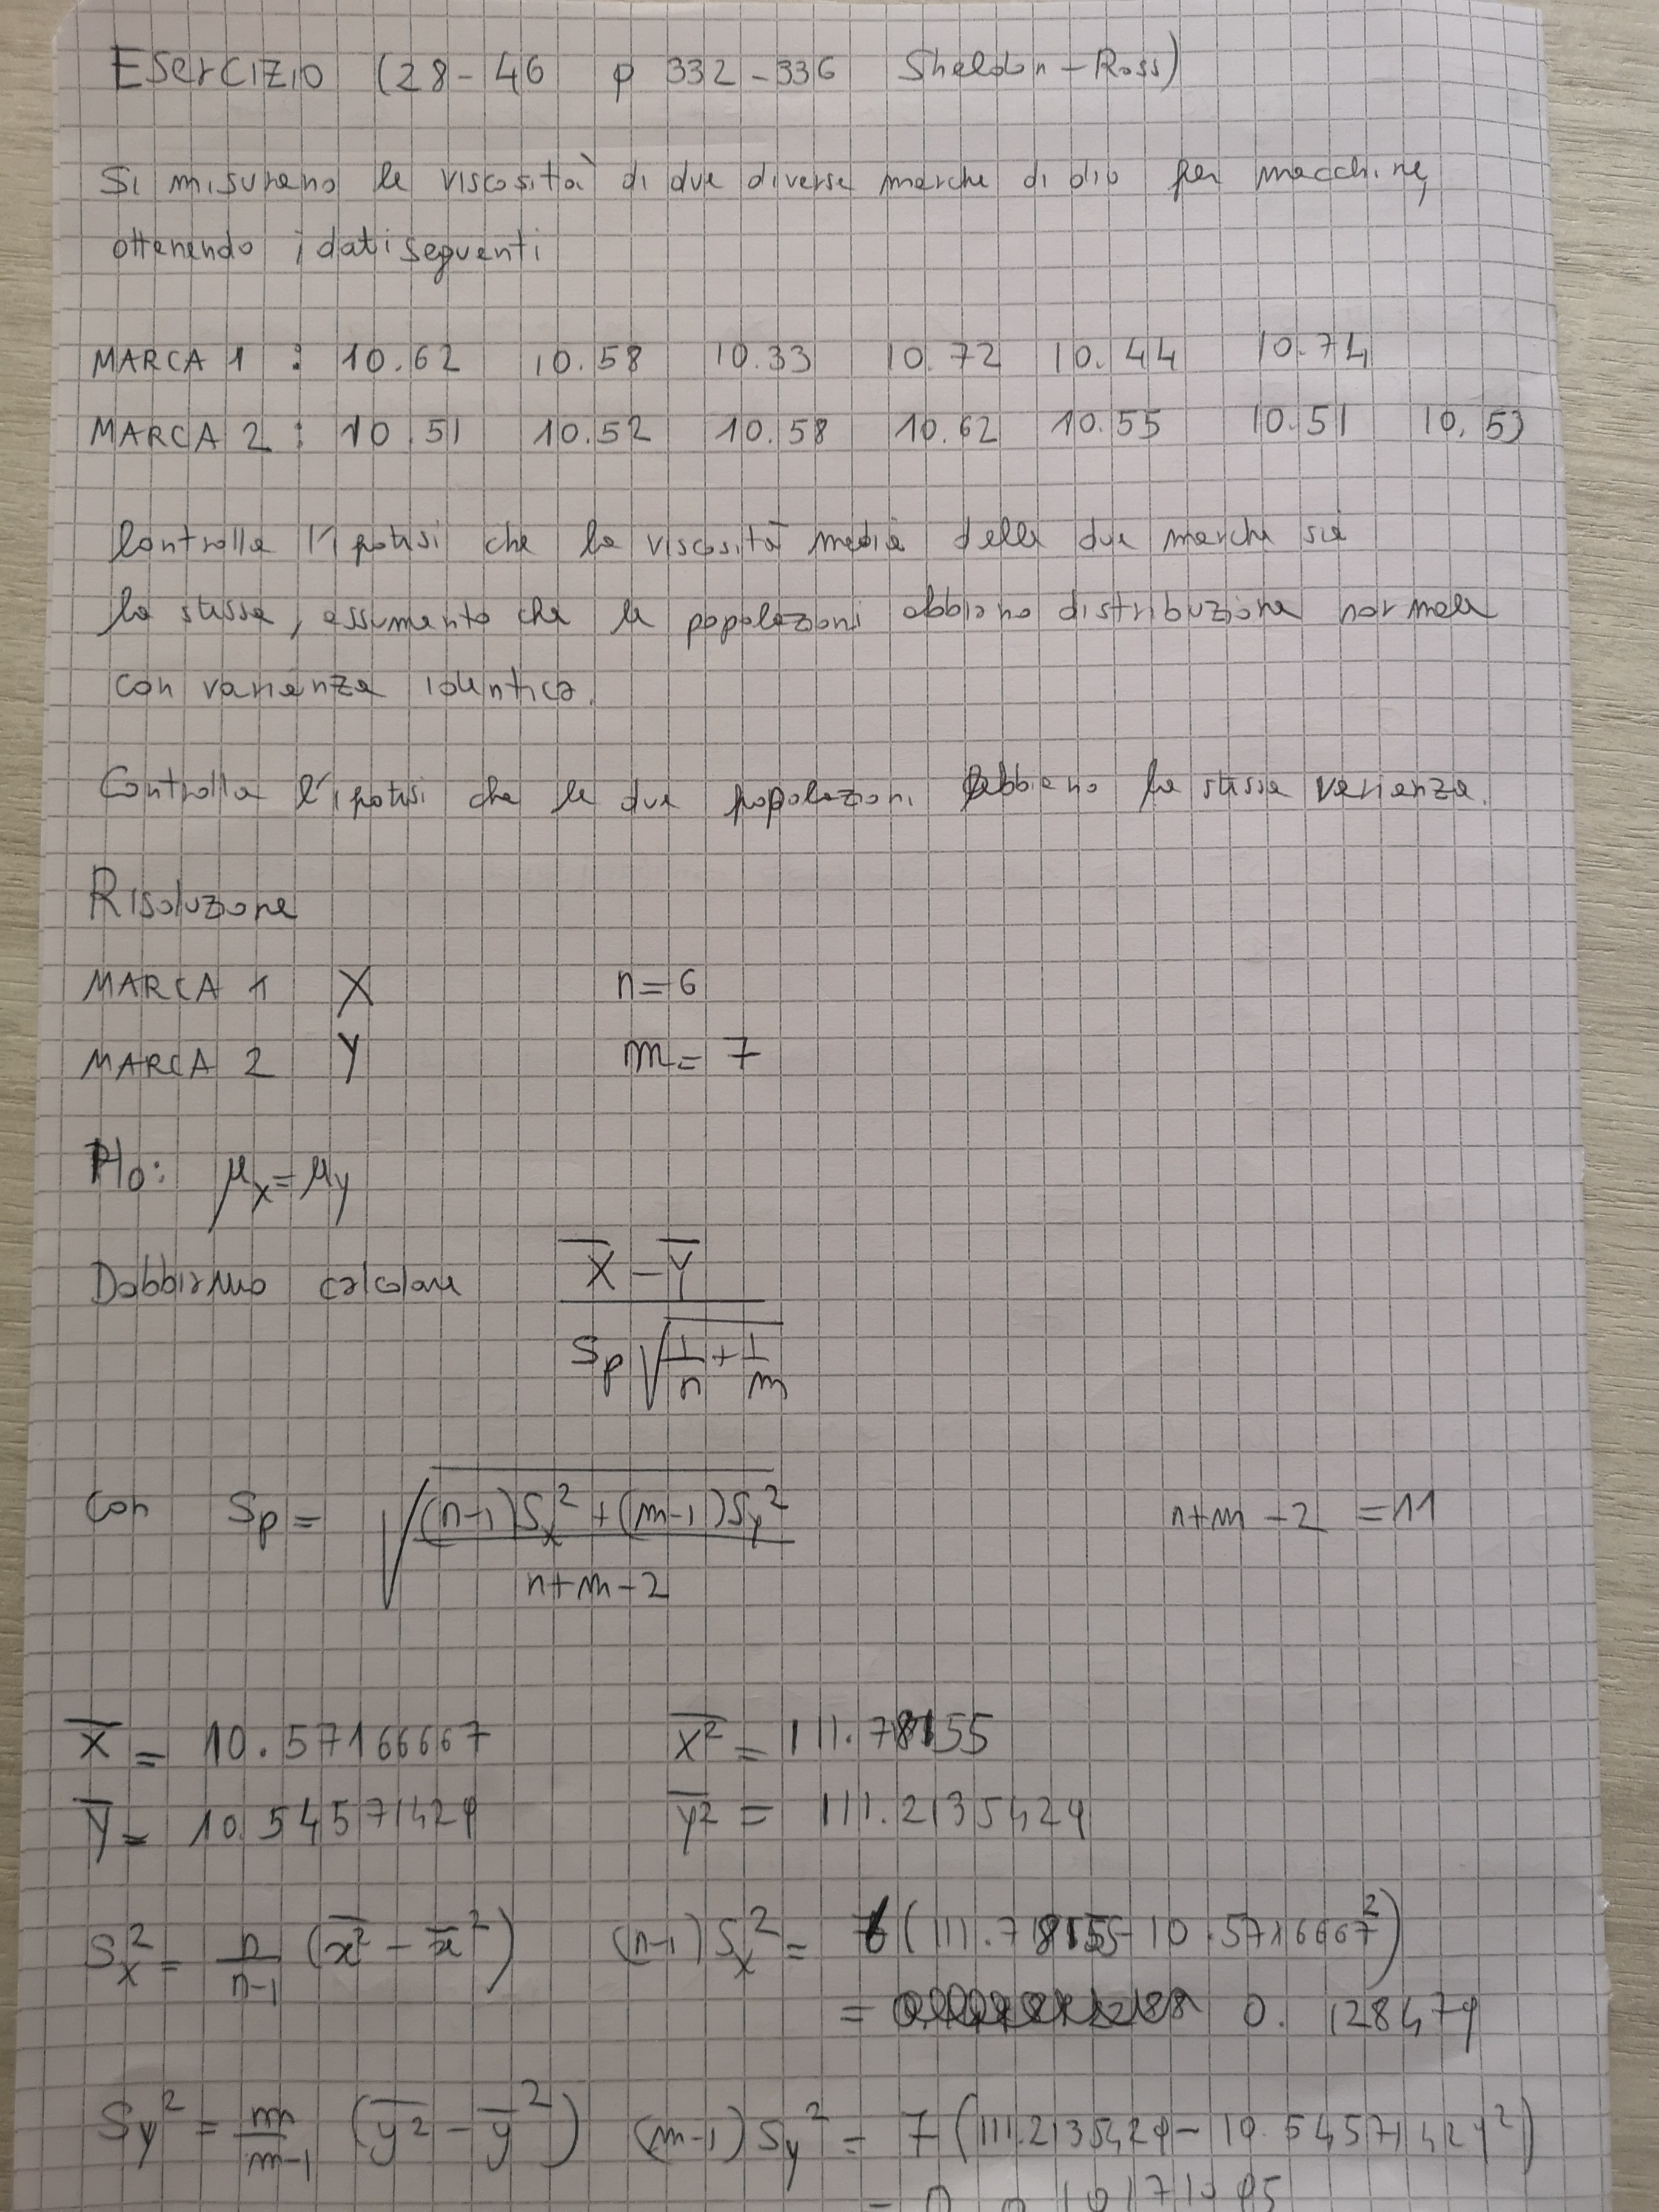 Esercizio (28-46 p 332-336 Sheldon-Ross)
Si misurano le viscosità di due diverse marche di olio per macchine,
ottenendo i dati seguenti
MARCA 1 : 10.62 10.58 10.33 10.72 10.44 10.74
MARCA 2 : 10.51 10.52 10.58 10.62 10.55 10.51 10.53
Controlla l'ipotesi che la viscosità media delle due marche sia
la stessa, assumento che le popolazioni abbiano distribuzione normale
con varianza identica.
Controlla l'ipotesi che le due popolazioni abbiano la stessa varianza.
Risoluzione
MARCA 1 X n=6
MARCA 2 Y m=7
H0: μx=μy
Dobbiamo calcolare (X̄-Ȳ)/(Sp√(1/n+1/m))
con Sp = √(((n-1)Sx²+(m-1)Sy²)/(n+m-2)) n+m-2=11
X̄ = 10.57166667 x̄² = 111.78155
Ȳ = 10.54571429 ȳ² = 111.2135429
Sx² = n/(n-1) (x̄² - x̄²) (n-1)Sx² = 6(111.78155-10.5716667²)
= 0.128479
Sy² = m/(m-1) (ȳ² - ȳ²) (m-1)Sy² = 7(111.2135429-10.54571429²)